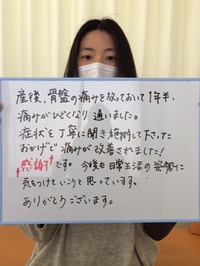 産後、骨盤の痛みを放っておいて1年半、
痛みがひどくなり通いました。
症状を丁寧に聞き施術して下さった
おかげで痛みが改善されました!
"感謝"です。今後も日常生活の姿勢に
気をつけていこうと思っています。
ありがとうございます。